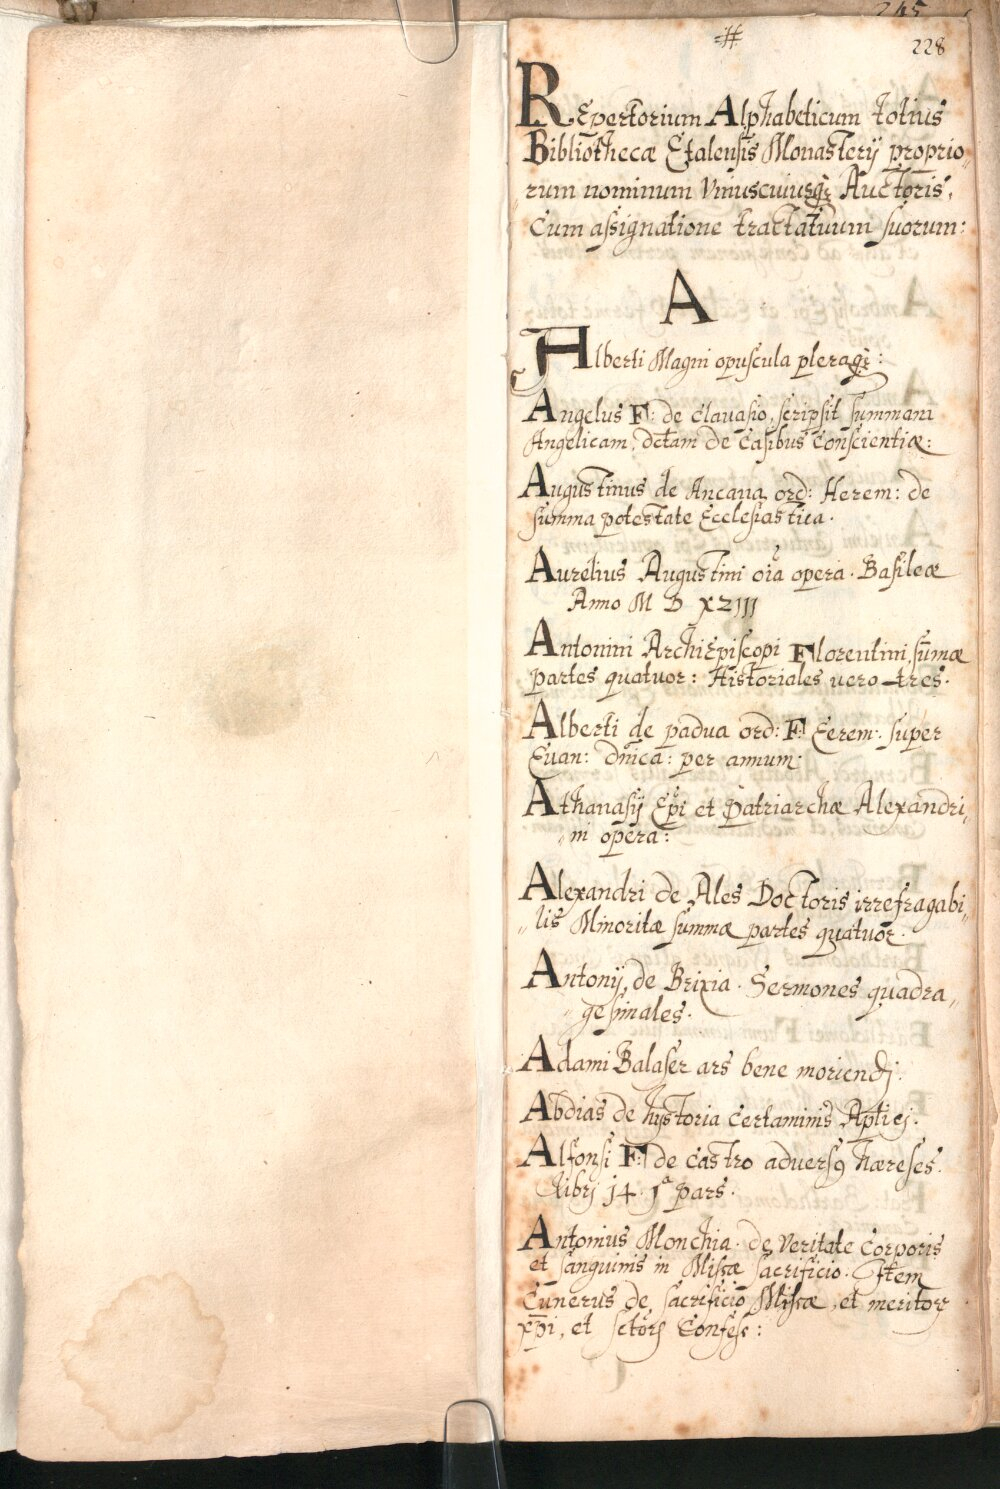 245
#
228
REpertorium Alphabeticum totius
Bibliothecæ Etalensis Monasterÿ proprio„
„rum nominum Vniuscuiusqȝ Auctoris,
Cum assignatione tractatuum suorum:
A
Alberti Magni opuscula pleraqȝ:
Angelus F: de Clauasio, scripsit summam
Angelicam, dc̄tam de Casibus Conscientiæ:
Augustinus de Ancana ord: Herem: de
summa potestate Ecclesiastica.
Aurelius Augustini oīa opera. Basileæ
Anno M D XZIII
Antonini ArchiEpiscopi Florentini, sum̄æ
partes quatuor: Historiales vero tres.
Alberti de padua ord: F: Eerem: super
Euan: dn̄ica: per annum:
Athanasÿ Ep̄i et Patriarchæ Alexandri„
„ni opera:
Alexandri de Ales Doctoris irrefragabi„
„lis Minoritæ summæ partes quatuor.
Antonÿ, de Brixia. Sermones quadra„
„gesimales.
Adami Balaser ars bene moriendj.
Abdias de hystoria Certaminis Ap̄licj.
Alfonsi F: de Castro adversꝰ hæreses.
Librj j4. jª pars.
Antonius Monchia. de Veritate Corporis
et sanguinis in Missæ sacrificio. Item
Cunerus de sacrificio Missæ, et meritoꝝ
xp̄i, et sctōꝝ Confess: